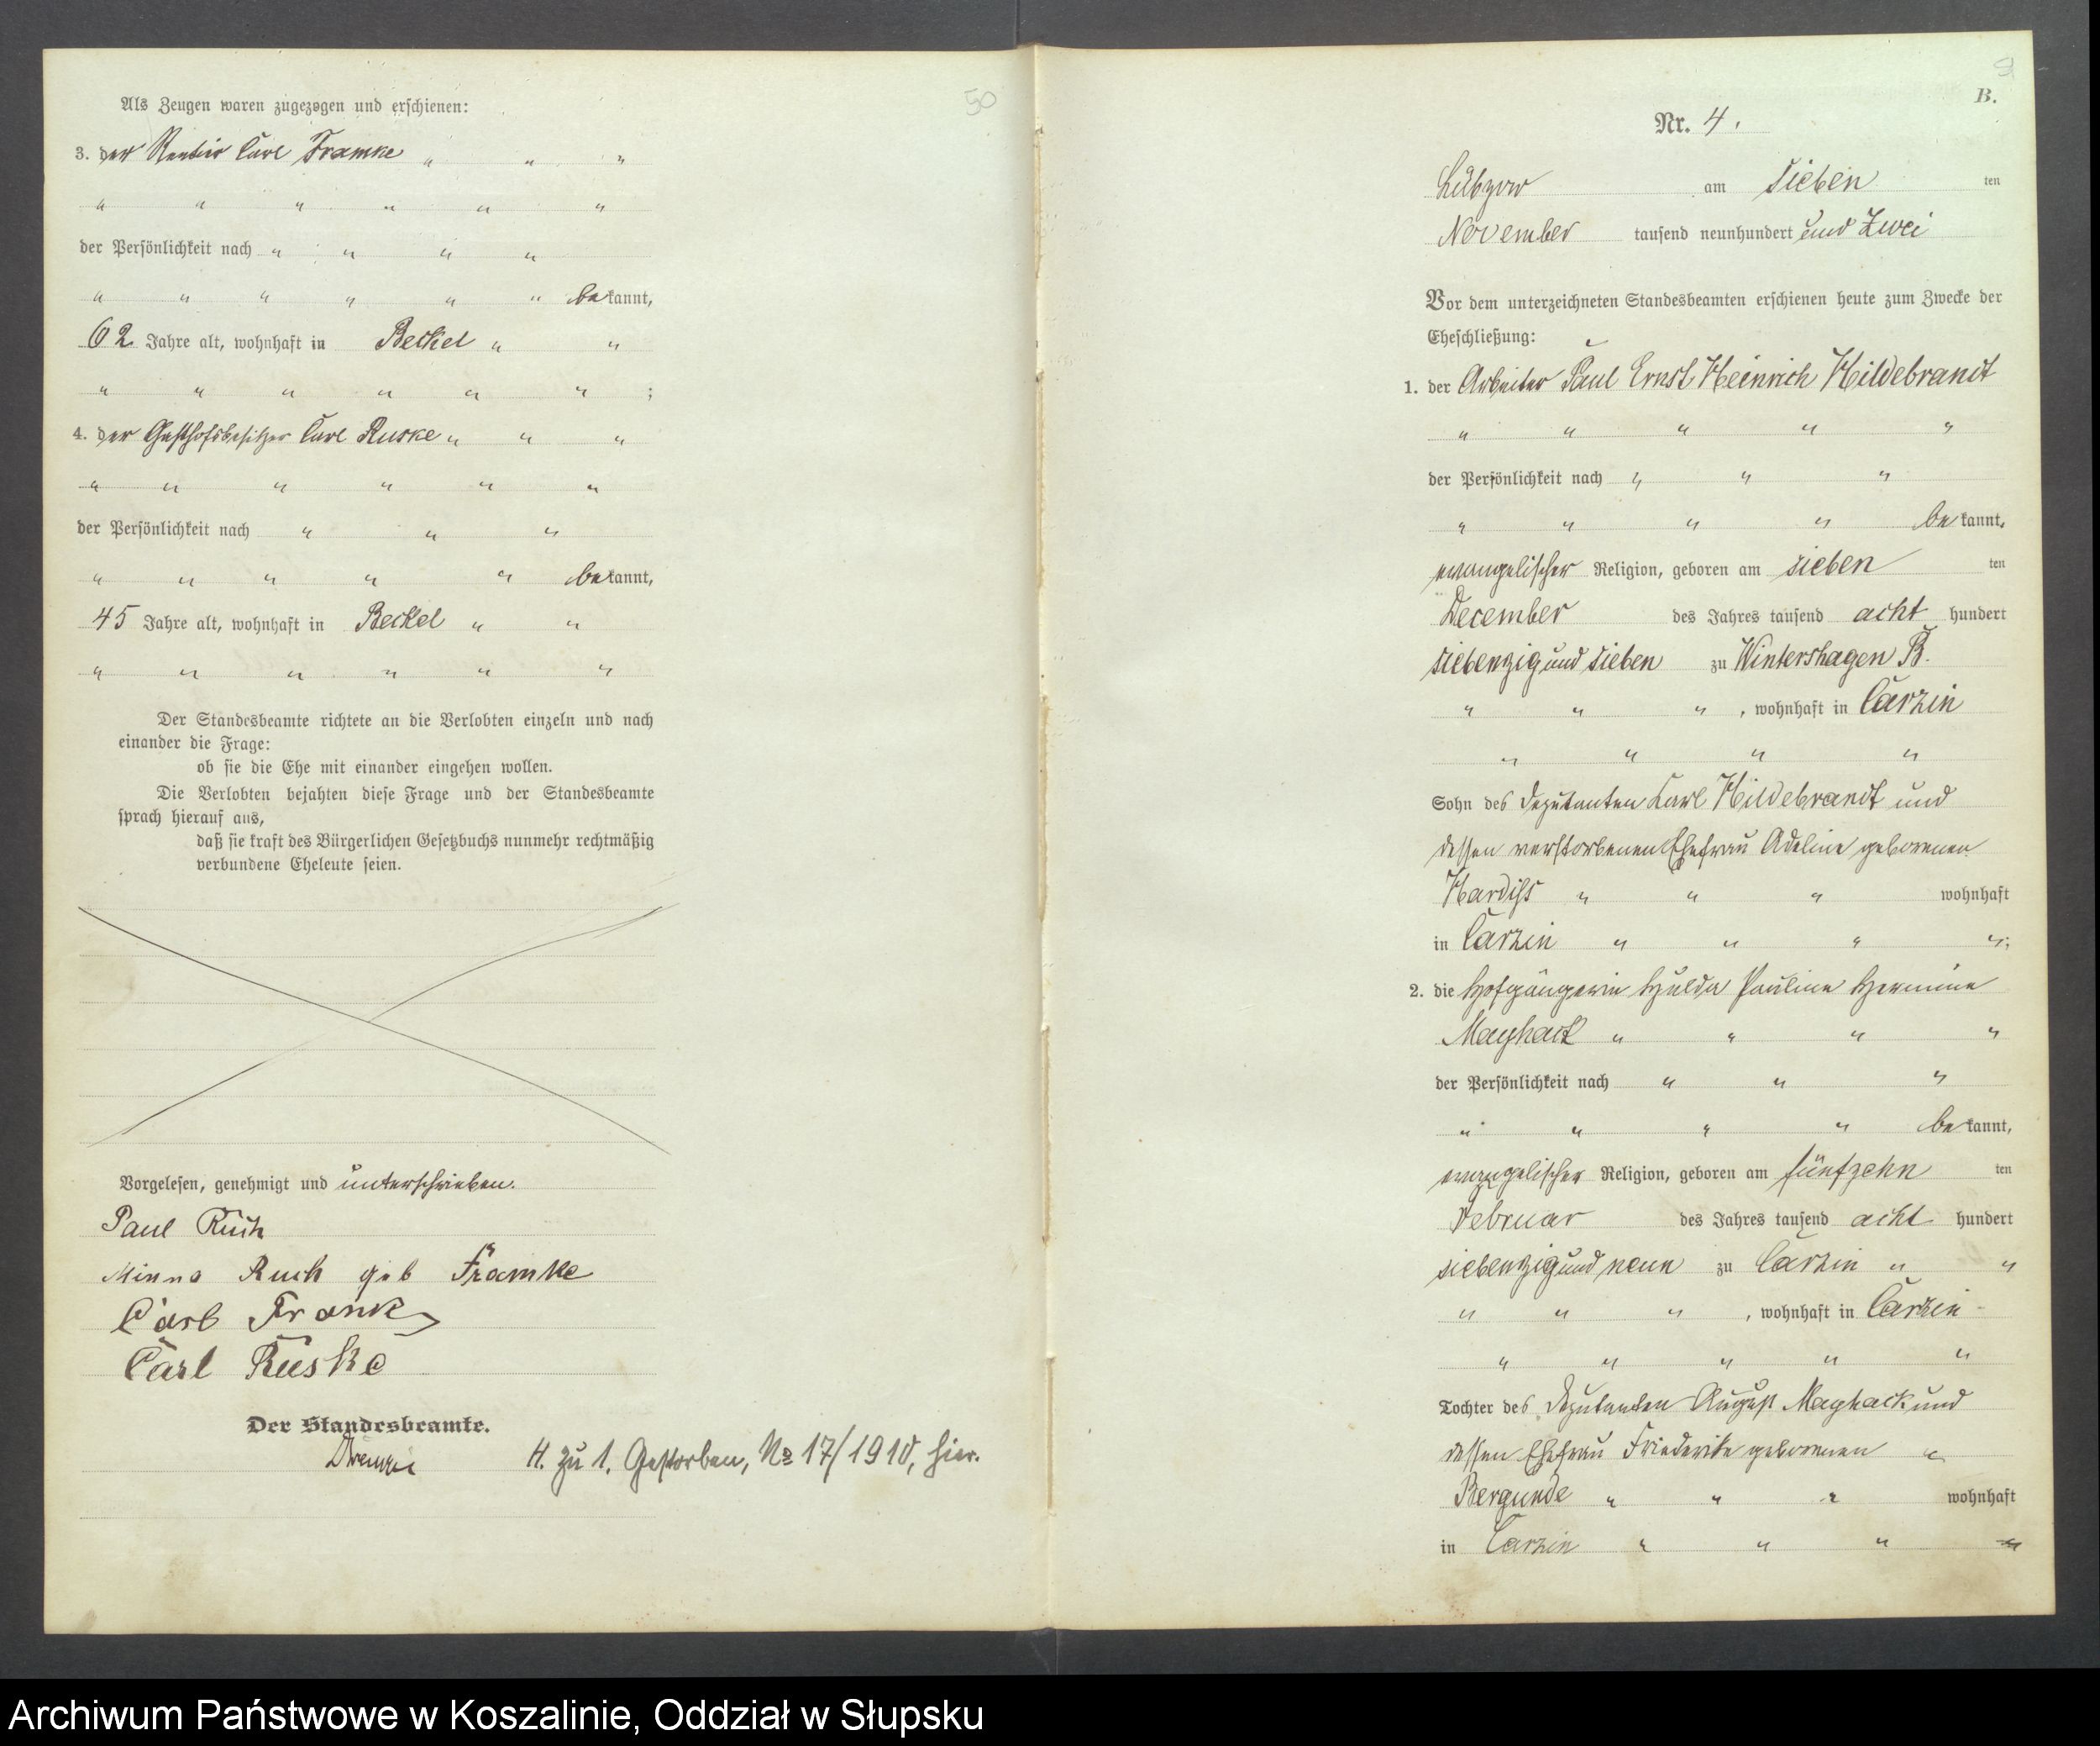 50
Als Zeugen waren zugezogen und erschienen:
3. der Rentier Carl Framke " " "
" " " " " "
der Persönlichkeit nach " " " "
" " " " " " bekannt,
62 Jahre alt, wohnhaft in Beckel " "
" " " " " " ;
4. der Gasthofsbesitzer Carl Ruske " " "
" " " " " "
der Persönlichkeit nach " " "
" " " " " bekannt,
45 Jahre alt, wohnhaft in Beckel " "
" " " " " "
Der Standesbeamte richtete an die Verlobten einzeln und nach
einander die Frage:
ob sie die Ehe mit einander eingehen wollen.
Die Verlobten bejahten diese Frage und der Standesbeamte
sprach hierauf aus,
daß sie kraft des Bürgerlichen Gesetzbuchs nunmehr rechtmäßig
verbundene Eheleute seien.
Vorgelesen, genehmigt und unterschrieben.
Paul Ruch
Minna Ruch geb Framke
Carl Framke
Carl Ruske
Der Standesbeamte.
H. zu 1. Gestorben, No 17/1910, hier.
B.
Nr. 4.
Lübzow am sieben ten
November tausend neunhundert und zwei
Vor dem unterzeichneten Standesbeamten erschienen heute zum Zwecke der
Eheschließung:
1. der Arbeiter Paul Ernst Heinrich Hildebrandt
" " " " "
der Persönlichkeit nach " " "
" " " " bekannt,
evangelischer Religion, geboren am sieben ten
December des Jahres tausend acht hundert
siebenzig und sieben zu Wintershagen B.
" " " , wohnhaft in Carzin
" " " "
Sohn des Deputanten Karl Hildebrandt und
dessen verstorbenen Ehefrau Adeline geborenen
Hardiss " " " wohnhaft
in Carzin " " " ";
2. die Hofgängerin Hulda Pauline Hermine
Mayhack " " " "
der Persönlichkeit nach " " "
" " " " bekannt,
evangelischer Religion, geboren am fünfzehn ten
Februar des Jahres tausend acht hundert
siebenzig und neun zu Carzin " "
" " " , wohnhaft in Carzin
" " " " "
Tochter des Deputanten August Mayhack und
dessen Ehefrau Friederike geborenen "
Bergunde " " " wohnhaft
in Carzin " " " "
Archiwum Państwowe w Koszalinie, Oddział w Słupsku